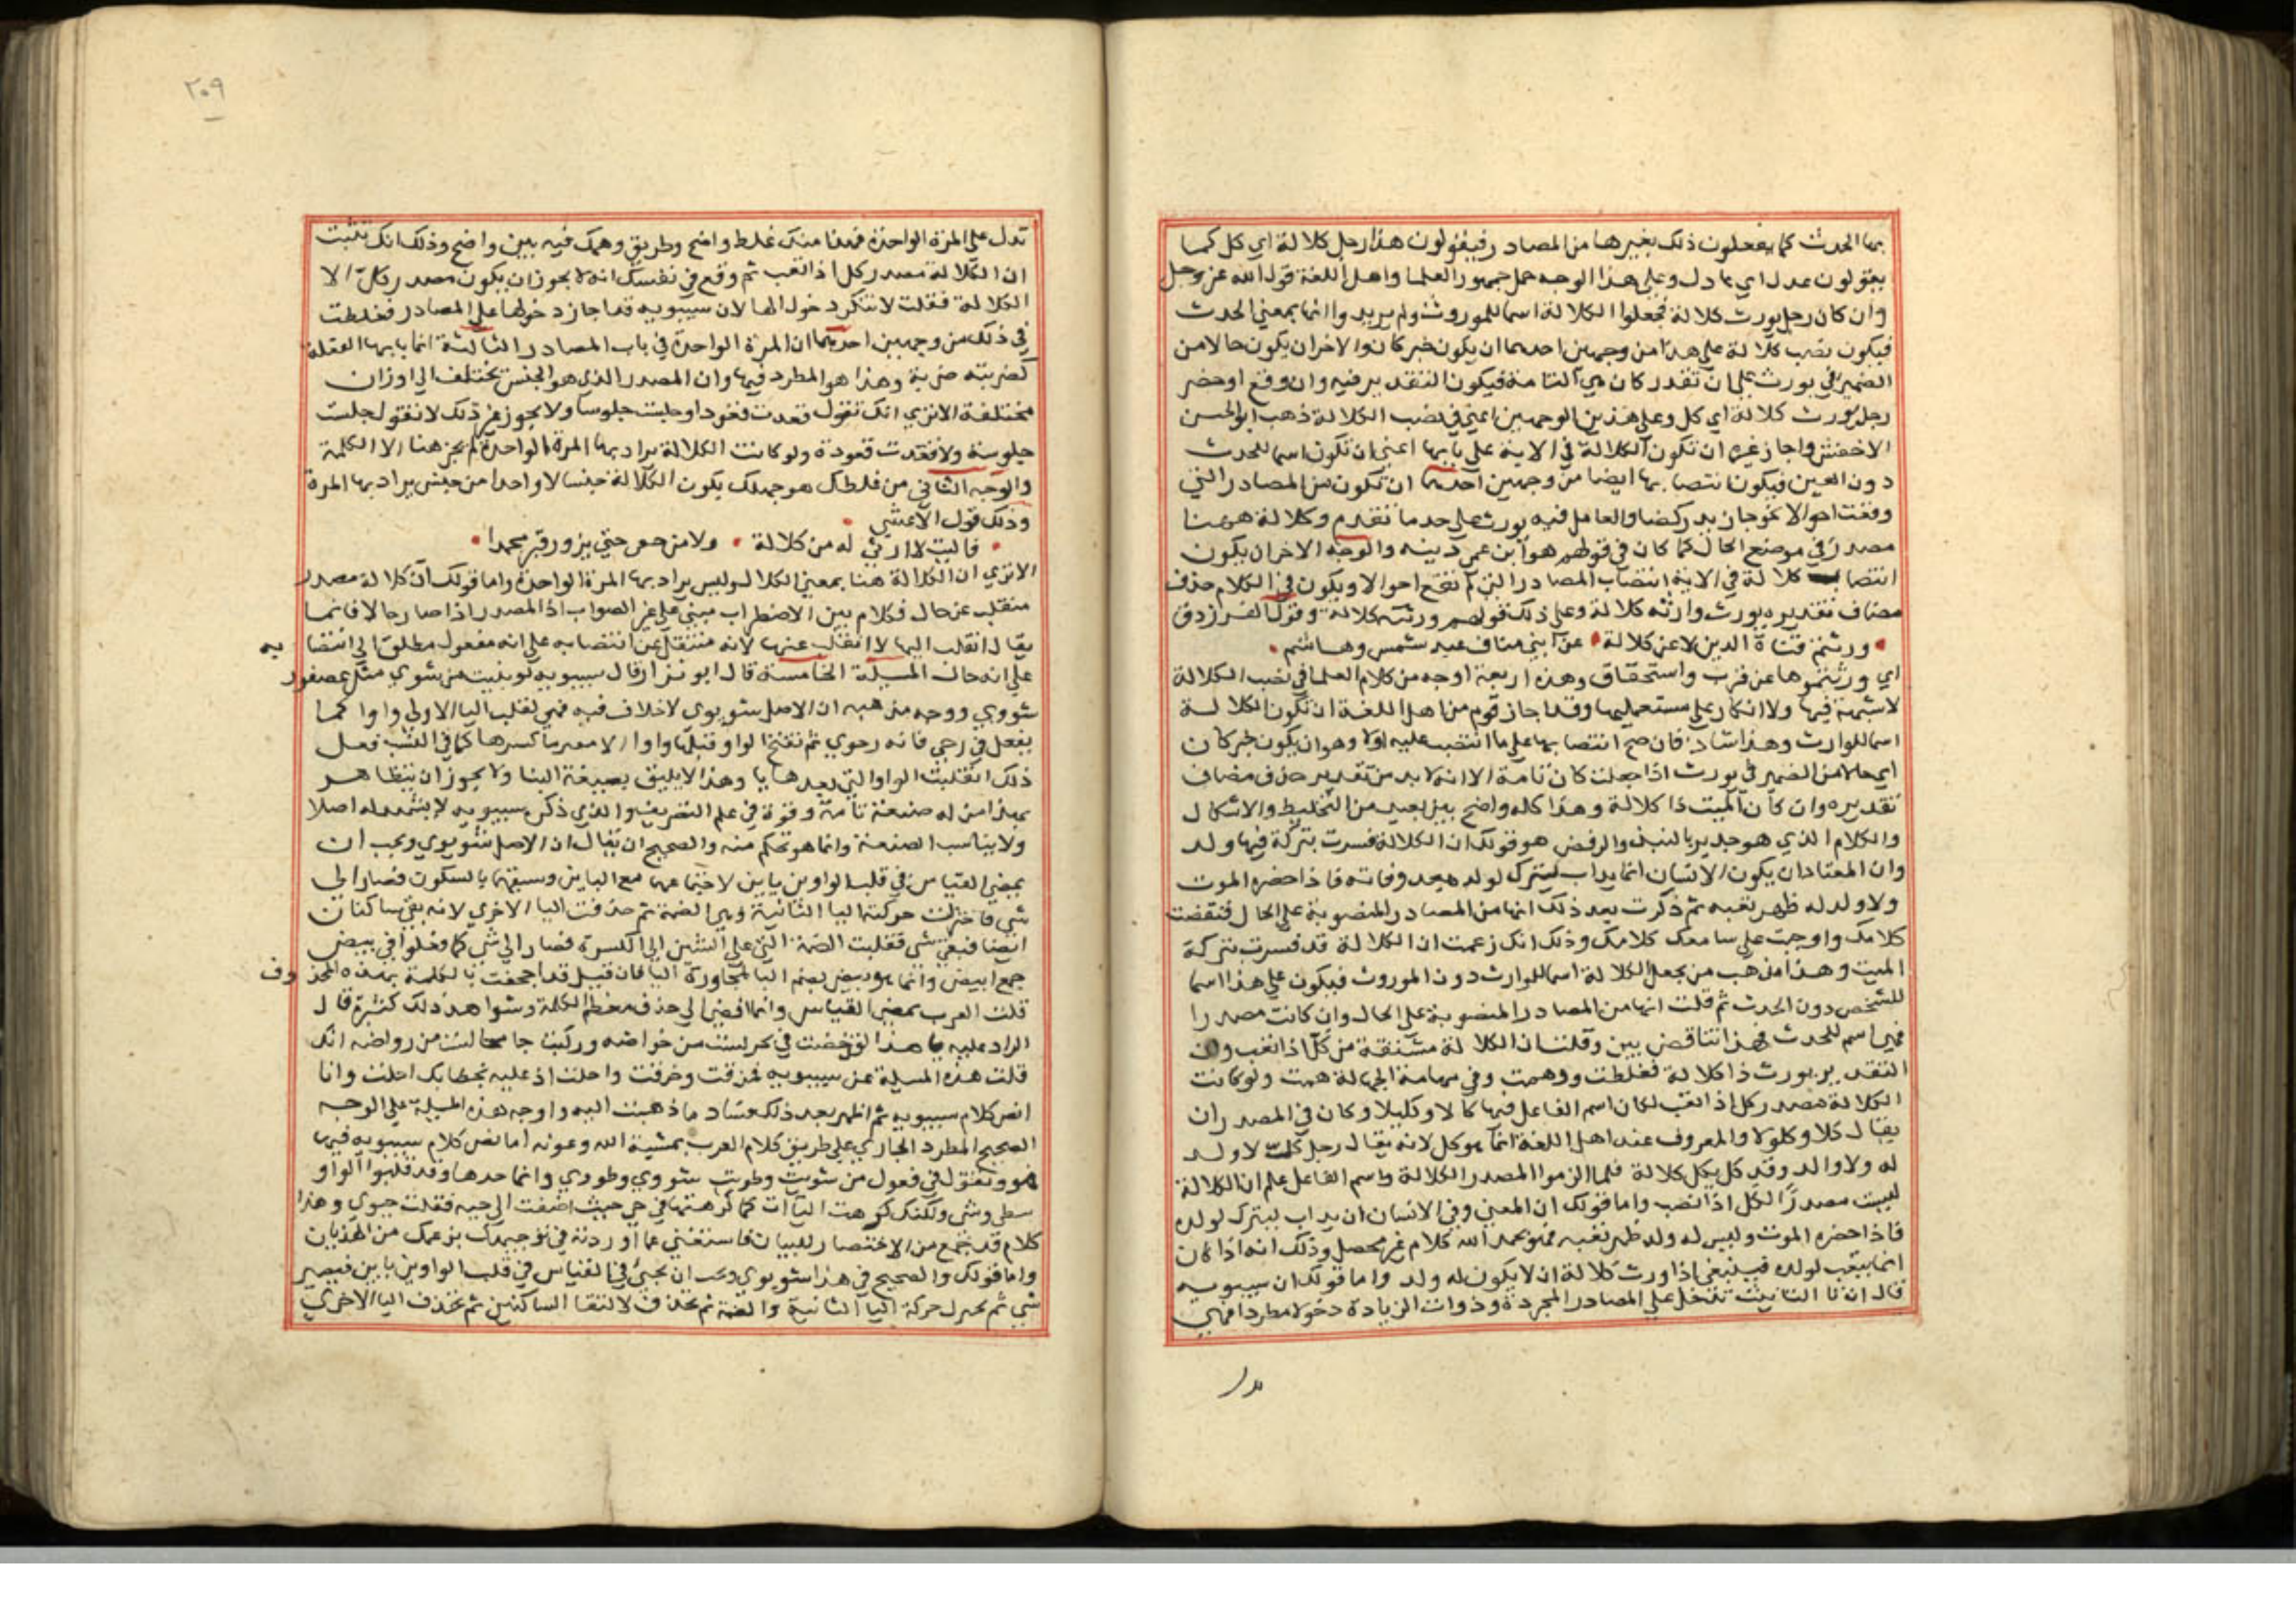 بها الحدث كما يفعلون ذلك بغيرها من المصادر فيقولون هذا رجل كلالة اي كل كما
يقولون عدل اي عادل وعلي هذا الوجه حمل جمهور العلما واهل اللغة قول الله عز وجل
وان كان رجل يورث كلالة فجعلوا الكلالة اسما للموروث ولم يريدوا انها بمعني الحدث
فيكون نصب كلالة علي هذا من وجهين احدهما ان يكون خبر كان والاخر ان يكون حالا من
الضمير في يورث علي ان تقدر كان هي التامة فيكون التقدير فيه وان وقع او حضر
رجل يورث كلالة اي كل وعلي هذين الوجهين اعني في نصب الكلالة ذهب ابو الحسن
الاخفش واجاز غيره ان تكون الكلالة في الاية علي بابها اعني ان تكون اسما للحدث
دون العين فيكون انتصابها ايضا من وجهين احدهما ان تكون من المصادر التي
وقعت احوالا نحو جا زيد ركضا والعامل فيه يورث علي حد ما تقدم وكلالة ههنا
مصدر في موضع الحال كما كان في قولهم هو ابن عمي دنية والوجه الاخر ان يكون
انتصاب كلالة في الاية انتصاب المصادر التي لم تقع احوالا ويكون في الكلام حذف
مضاف تقديره يورث وراثة كلالة وعلي ذلك قولهم ورثته كلالة وقول الفرزدق
ورثتم قناة الدين لا عن كلالة عن ابني مناف عبد شمس وهاشم
اي ورثتموها عن قرب واستحقاق وهذه اربعة اوجه من كلام العلما في نصب الكلالة
لا شبهة فيها ولا انكار علي مستعمليها وقد اجاز قوم من اهل اللغة ان تكون الكلالة
اسما للوارث وهذا شاذ فان صح انتصابها علي ما انتصب عليه اولا وهو ان يكون خبر كان
اي حالا من الضمير في يورث اذا جعلت كان تامة الا انه لا بد من تقدير حذف مضاف
تقديره وان كان الميت ذا كلالة وهذا كله واضح بين بعيد من التخليط والاشكال
والكلام الذي هو جدير بالنبذ والرفض هو قولك ان الكلالة فسرت بتركة فيها ولد
وان المعتاد ان يكون الانسان انما يداب ليترك لولده بعد وفاته فاذا حضره الموت
ولا ولد له ظهر تعبه ثم ذكرت بعد ذلك انها من المصادر المنصوبة علي الحال فنقضت
كلامك واوجبت علي سامعك كلامك وذلك انك زعمت ان الكلالة قد فسرت بتركة
الميت وهذا مذهب من يجعل الكلالة اسما للوارث دون الموروث فيكون علي هذا اسما
للشخص دون الحدث ثم قلت انها من المصادر المنصوبة علي الحال وان كانت مصدرا
فهي اسم للحدث فهذا تناقض بين وقلت ان الكلالة مشتقة من كل اذا تعب وان
التقدير يورث ذا كلالة فغلطت ووهمت وفي مهامة الجهالة همت ولو كانت
الكلالة مصدر كل اذا تعب لكان اسم الفاعل فيها كالا وكليلا وكان في المصدر ان
يقال كلا وكلولا والمعروف عند اهل اللغة انما هو كل لانه يقال رجل كل لا ولد
له ولا والد وقد كل يكل كلالة فلما الزموا المصدر الكلالة واسم الفاعل علم ان الكلالة
ليست مصدرا لكل اذا تعب واما قولك ان المعني وفي الانسان ان يداب ليترك لولده
فاذا حضره الموت وليس له ولد ظهر تعبه فهو بحمد الله كلام غير محصل وذلك انه اذا كان
انما يتعب لولده فينبغي اذا ورث كلالة ان لا يكون له ولد واما قولك ان سيبويه
قال ان تا التانيث تدخل علي المصادر المجردة وذوات الزيادة دخولا مطردا فهي
تدل
٢٠٩
تدل علي المرة الواحدة فهذا منك غلط واضح وطريق وهمك فيه بين واضح وذلك انك تثبت
ان الكلالة مصدر كل اذا تعب ثم وقع في نفسك انه لا يجوز ان يكون مصدر كل الا
الكلالة فقلت لا تنكر دخول الها لان سيبويه قد اجاز دخولها علي المصادر فغلطت
في ذلك من وجهين احدهما ان المرة الواحدة في باب المصادر الثالثة انما بابها الفعلة
كضربته ضربة وهذا هو المطرد فيها وان المصدر الذي هو الجنس يختلف الي اوزان
مختلفة الا تري انك تقول قعدت قعودا وجلست جلوسا ولا يجوز غير ذلك لا تقول جلست
جلوسة ولا قعدت قعودة ولو كانت الكلالة يراد بها المرة الواحدة لم يجز هنا الا الكلمة
والوجه الثاني من غلطك هو جهلك بكون الكلالة جنسا لا واحدا من جنس يراد بها المرة
وذلك قول الاعشي
فاليت لا ارثي له من كلالة ولا من حفي حتي يزور قبر محمدا
الا تري ان الكلالة هنا بمعني الكلال وليس يراد بها المرة الواحدة واما قولك ان كلالة مصدر
منقلب عن حال فكلام بين الاضطراب مبني علي غير الصواب اذ المصدر اذا صار حالا فانما
يقال انقلب اليها لا انقلب عنها لانه منتقل عن انتصابه علي انه مفعول مطلق الي انتصابه
علي انه حال المسيلة الخامسة قال ابو نزار قال سيبويه لو بنيت من شوي مثل عصفور
شووي ووجه مذهبه ان الاصل شويوي لا خلاف فيه فهي تقلب اليا الاولي واوا كما
يفعل في رحي فانه رحوي ثم تفتح الواو قبلها واوا لا معرما كسرها كما في النسب فعل
ذلك انقلبت الواو التي بعدها يا وهذا لا يليق بصيغة البنا ولا يجوز ان يتظاهر
بهذا من له صنعة تامة وقوة في علم التصريف والذي ذكره سيبويه لا يشهد له اصلا
ولا يناسب الصنعة وانما هو تحكم منه والصحيح ان يقال ان الاصل شويوي ويجب ان
بمضي القياس في قلب الواوين يايين لاجتماعهما مع اليايين وسبقهما بالسكون فصار الي
شي فاختزلت حركة اليا الثانية وهي الضمة ثم حذفت اليا الاخري لانه بقي ساكنان
ايضا فبقي شي فقلبت الضمة التي علي الشين الي الكسرة فصار الي شي كما فعلوا في بيض
جمع ابيض وانما هو بيض بضم البا لمجاورة اليا فان قيل قد اجحفت بالكلمة بهذه المحذوف
قلت العرب بمضي القياس وانما افضي الي حذف معظم الكلمة وشواهد ذلك كثيرة قال
الراد عليه يا هذا لقد خضت في بحر لست من خواضه وركبت جامحا لست من رواضه انك
قلت هذه المسيلة عن سيبويه فمزقت وخرفت واحلت اذ عليه بخطابك احلت وانا
انص كلام سيبويه ثم اظهر بعد ذلك عناد ما ذهبت اليه واوجه هذه المسيلة علي الوجه
الصحيح المطرد الجاري علي طريق كلام العرب بمشية الله وعونه اما نص كلام سيبويه فيها
فهو وتقول في فعول من شويت وطويت شووي وطووي وانما حدها وقد قلبوا الواو
طي وشي ولكنك كرهت اليآات كما كرهتها في حي حيث اضفت الي حية فقلت حيوي وهذا
كلام قد جمع من الاختصار للبيان فاستغني عما اوردته في توجيهك بزعمك من الهذيان
واما قولك والصحيح في هذا شويوي ويجب ان يجي في القياس في قلب الواوين يايين فيصير
شي ثم تختزل حركة اليا الثانية والضمة ثم تحذف لالتقا الساكنين ثم تحذف اليا الاخري